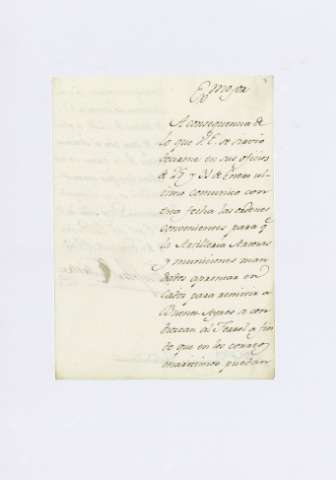 Exmo Sor
A consequencia de
lo que V.E. se sirvio
decirme en sus oficios
de 27 y 31 de Enero ul-
timo comunico con
esta fecha las ordenes
convenientes para q
la Artilleria Armas
y municiones man-
dadas aprontar en
Cadiz para remitir a
Buenos Ayres se con-
duzcan al Ferrol a fin
de que en los correos
maritimos puedan